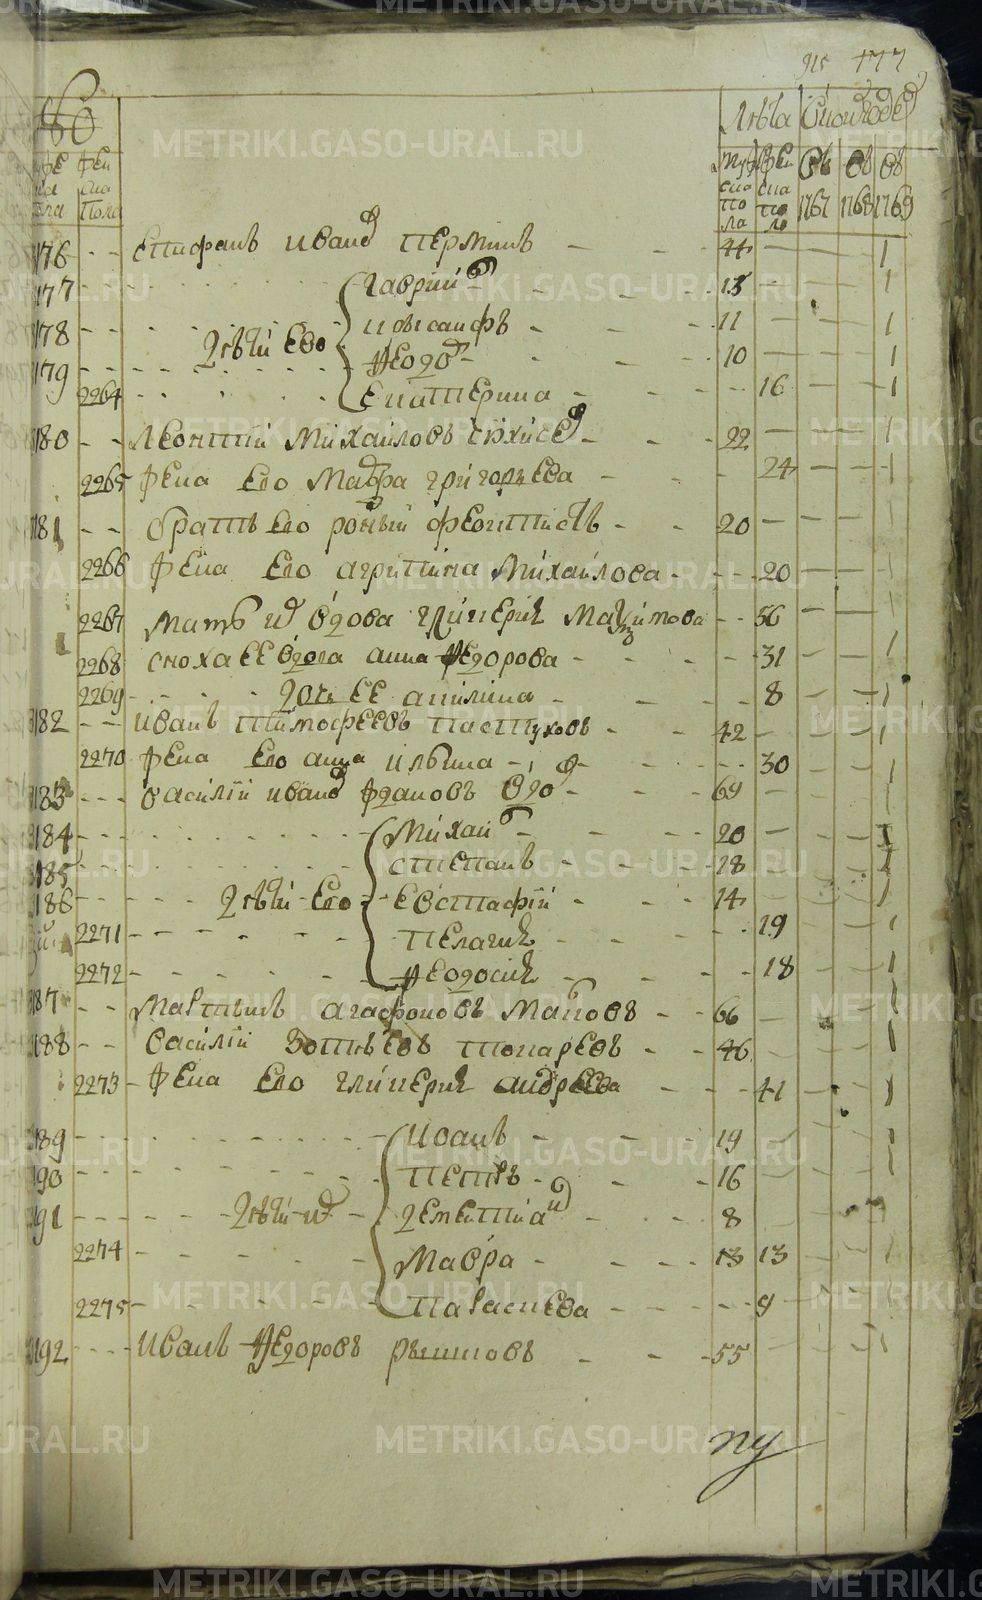 915 177
Лѣта
муж ска по ла
жен ска по ла
Съ 1767
Съ 1768
Съ 1769
жен ска пола
176 - - епифанъ иванов перминъ - - 44 - - 1
177 - - гаврил - - 13 - - 1
178 - - дѣти его - - 11 - - 1
179 - - феодо - - 10 - - 1
2264 екатерина - - 16 - - 1
180 - - леонтий михаиловъ - - 22 - - 1
2265 жена его мавра григорьева - - 24 - - 1
181 - - братъ его родныи феоктистъ - - 20 - - 1
2266 жена его агрипина михаилова - - 20 - - 1
2267 мать их вдова гликерия маѯимова - - 56 - - 1
2268 сноха ее вдова анна федорова - - 31 - - 1
2269 - - дочь ее акилина - - 8 - - 1
182 - - иванъ тимофеевъ пастуховъ - - 42 - - 1
2270 жена его анна ильина - - 30 - - 1
183 - - василий иванов ждановъ вдо - - 69 - - 1
184 - - михаил - - 20 - - 1
185 - - степанъ - - 18 - - 1
186 - - дѣти его - евстафий - - 14 - - 1
2271 - - пелагия - - 19 - - 1
2272 - - феодосия - - 18 - - 1
187 - - мартынъ агафоновъ - - 66 - - 1
188 - - василий зотѣевъ токаревъ - - 46 - - 1
2273 - жена его гликерия андреева - - 41 - - 1
189 - - иванъ - - 19 - - 1
190 - - петръ - - 16 - - 1
191 - - дѣти их - дементиан - - 8 - - 1
2274 - - мавра - - 13 13 - - 1
2275 - - параскева - - 9 - - 1
192 - - иванъ федоровъ - - 55 - - 1
METRIKI.GASO-URAL.RU